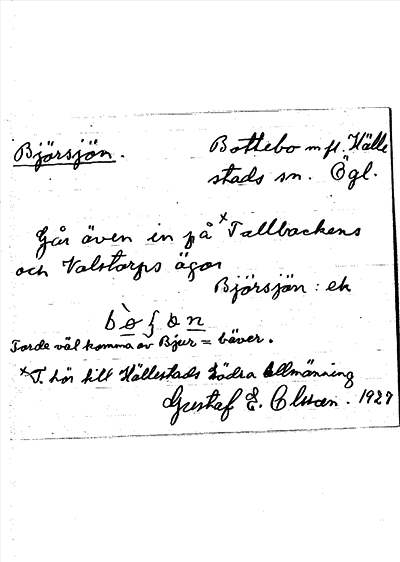 Björsjön. Bottebo m fl. Hälle
stads sn. Ögl.
Går även in på ˣTallbackens
och Valstorps ägor
Björsjön : ek
Torde väl komma av Bjur = bäver.
ˣT. hör till Hällestads Södra Allmänning
Gustaf E. Olsson. 1927